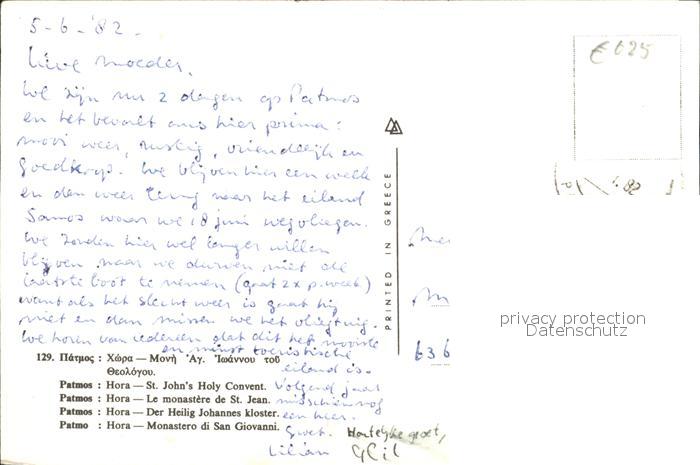 5-6-'82.
Lieve moeder,
We zijn nu 2 dagen op Patmos
en het bevalt ons hier prima:
mooi weer, rustig, vriendelijk en
goedkoop. We blijven hier een week
en dan weer terug naar het eiland
Samos waar we 18 juni wegvliegen.
We zouden hier wel langer willen
blijven maar we durven niet de
laatste boot te nemen (gaat 2x p. week)
want als het slecht weer is gaat hij
niet en dan missen we het vliegtuig.
We horen van iedereen dat dit het mooiste
en minst toeristische
eiland is.
Volgend jaar
misschien nog
een hier.
Groet.
Lilian
Hartelijke groet,
€025
PRINTED IN GREECE
636
privacy protection
Datenschutz
129. Πάτμος : Χώρα — Μονὴ Ἁγ. Ἰωάννου τοῦ
Θεολόγου.
Patmos : Hora — St. John's Holy Convent.
Patmos : Hora — Le monastère de St. Jean.
Patmos : Hora — Der Heilig Johannes kloster.
Patmo : Hora — Monastero di San Giovanni.